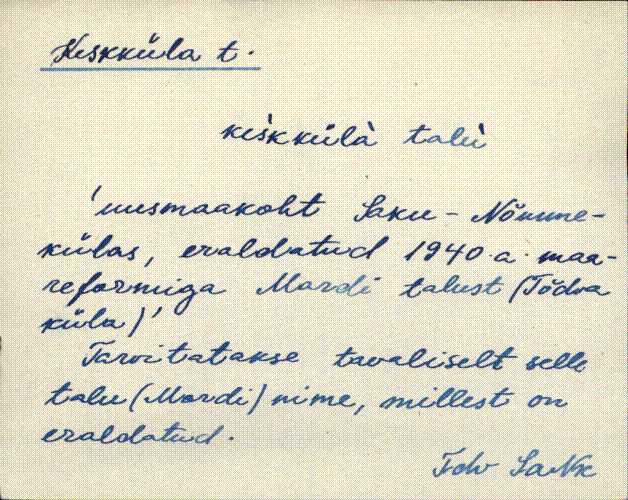 Keskküla t.
keskkülà talù
'uusmaakoht Saku-Nõmme-
külas, eraldatud 1940.a. maa-
reformiga Mardi talust (Tõdva
küla)'
Tarvitatakse tavaliselt selle
talu (Mardi) nime, millest on
eraldatud.